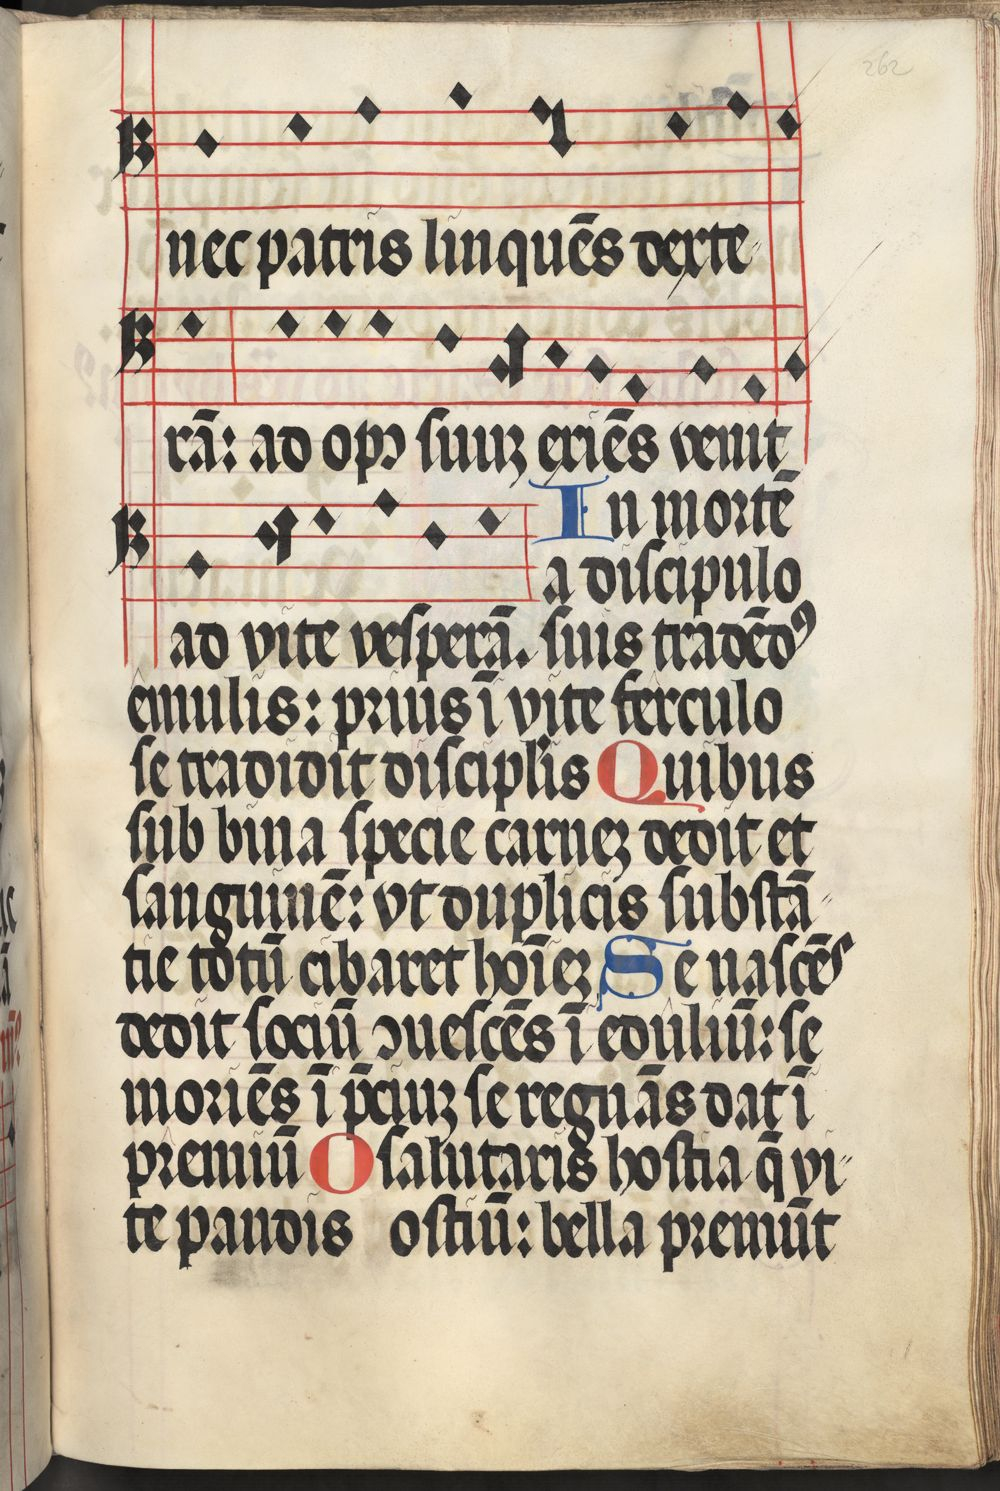 262
nec patris linquēs dexte
rā: ad opꝰ suuꝫ exiēs venit
In mortē
a discipulo
ad vite vesperā. suis tradēdꝰ
emulis: prius ī vite ferculo
se tradidit disciplis Quibus
sub bina specie carneꝫ dedit et
sanguinē: vt duplicis substā
tie totū cibaret hoīeꝫ Se nascēs
dedit sociū ↄuescēs ī eduliū: se
moriēs ī p̄ciuꝫ se regnās dat ī
premiū O salutaris hostia q̄ vi
te pandis ostiū: bella premūt